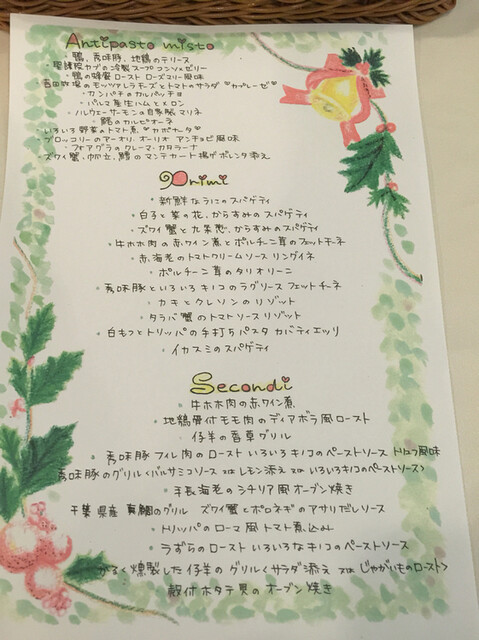 Antipasto misto
・鴨、秀味豚、地鶏のテリーヌ
・聖護院カブの冷製スープ コンソメゼリー
・鴨の蜂蜜ロースト ローズマリー風味
・吉田牧場のモッツァレラチーズとトマトのサラダ ♥カプレーゼ♥
・カンパチのカルパッチョ
・パルマ産生ハムとメロン
・ノルウェーサーモンの自家製マリネ
・鱈のカルピオーネ
・いろいろ野菜のトマト煮 ♥カポナータ♥
・ブロッコリーのアーリオ・オーリオ アンチョビ風味
・フォアグラのクレーマ・カタラーナ
・ズワイ蟹、帆立、鱈のマンテカート 揚げポレンタ添え
Primi
・新鮮なうにのスパゲティ
・白子と菜の花、からすみのスパゲティ
・ズワイ蟹と九条葱、からすみのスパゲティ
・牛ホホ肉の赤ワイン煮とポルチーニ茸のフェットチーネ
・赤海老のトマトクリームソース リングイネ
・ポルチーニ茸のタリオリーニ
・秀味豚といろいろキノコのラグソース フェットチーネ
・カキとクレソンのリゾット
・タラバ蟹のトマトソースリゾット
・白もつとトリッパの手打ちパスタ カバティエッリ
・イカスミのスパゲティ
Secondi
・牛ホホ肉の赤ワイン煮
・地鶏骨付モモ肉のディアボラ風ロースト
・仔羊の香草グリル
・秀味豚フィレ肉のロースト いろいろキノコのペーストソース トリュフ風味
秀味豚のグリル<バルサミコソース 又は レモン添え 又は いろいろキノコのペーストソース>
・手長海老のシチリア風オーブン焼き
・千葉県産 真鯛のグリル ズワイ蟹とポロネギのアサリだしソース
・トリッパのローマ風トマト煮込み
・うずらのロースト いろいろなキノコのペーストソース
かるく燻製した仔羊のグリル<サラダ添え 又は じゃがいものロースト>
殻付ホタテ貝のオーブン焼き